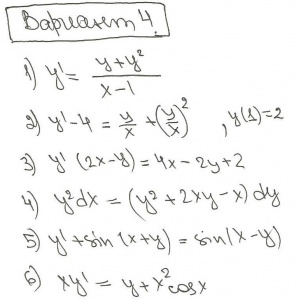 Вариант 4.
1) y' = (y+y²)/(x-1)
2) y'-4 = y/x + (y/x)², y(1)=2
3) y' (2x-y) = 4x-2y+2
4) y²dx = (y²+2xy-x) dy
5) y'+sin(x+y) = sin(x-y)
6) xy' = y+x²cosx